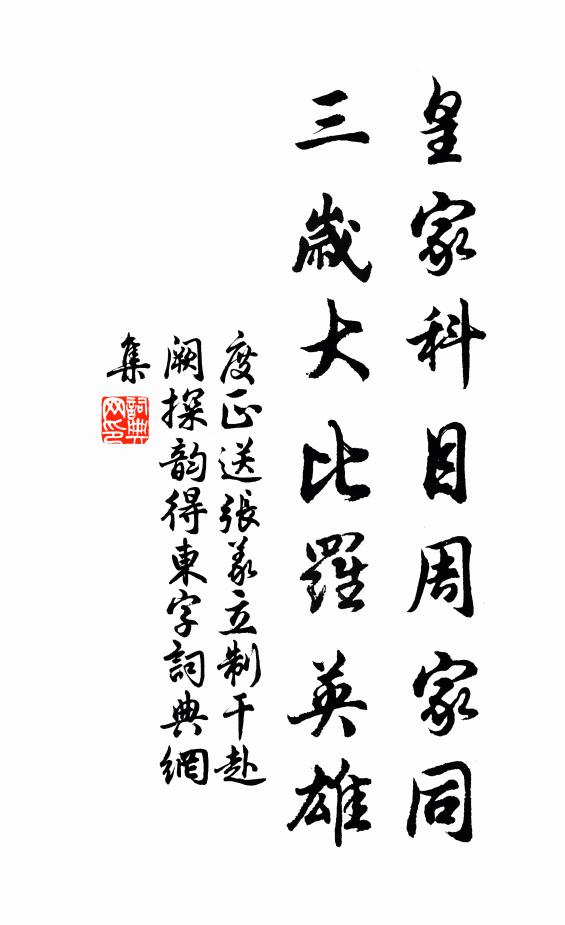 皇家科目周家同
三歲大比羅英雄
度正送張義立制干赴
闕探韵得東字詞典網
集
詞典網印